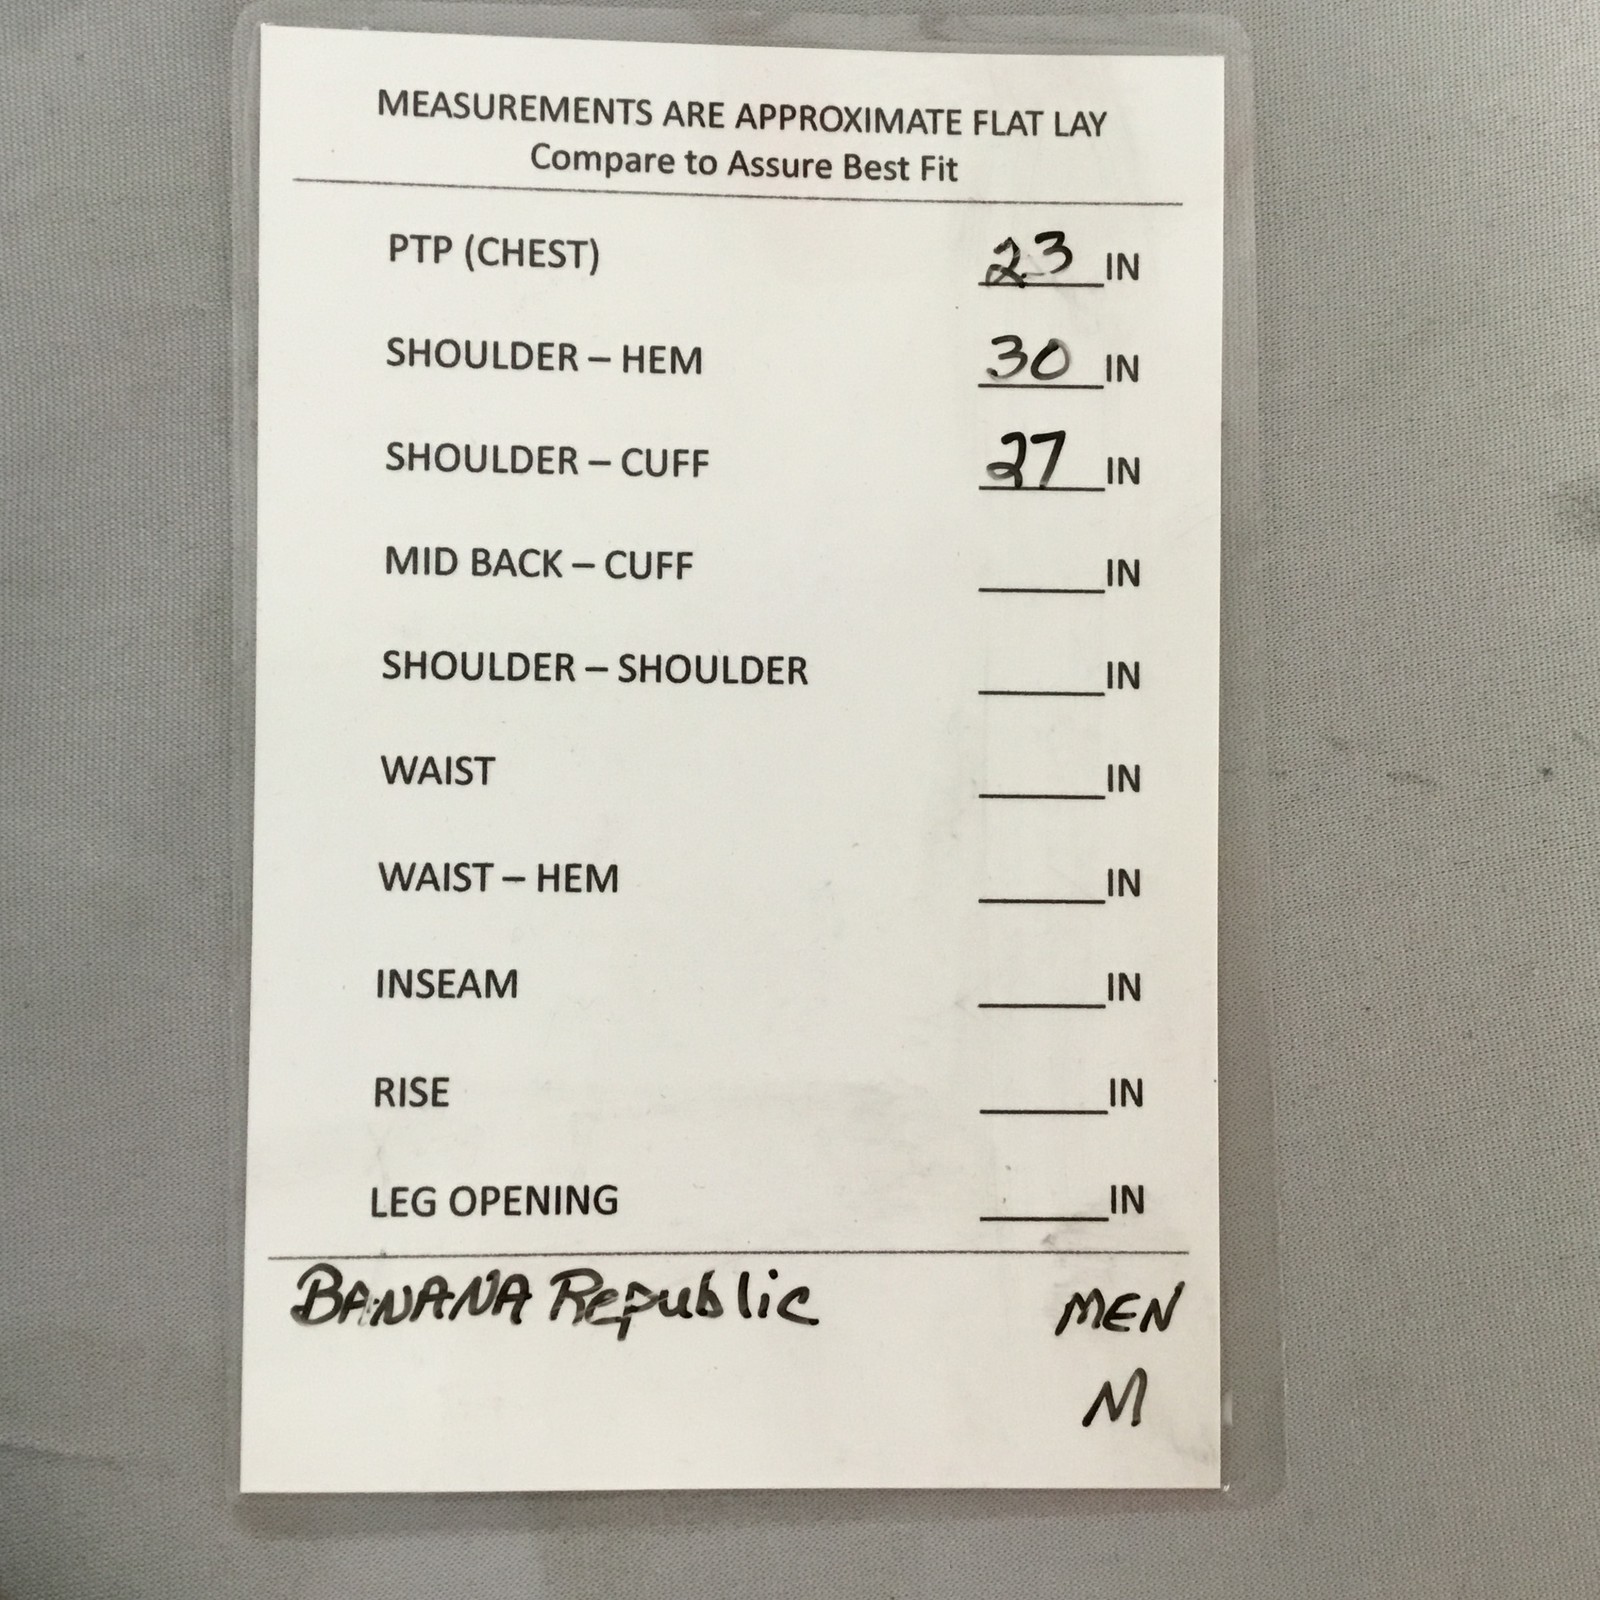 MEASUREMENTS ARE APPROXIMATE FLAT LAY
Compare to Assure Best Fit
PTP (CHEST) 23 IN
SHOULDER – HEM 30 IN
SHOULDER – CUFF 27 IN
MID BACK – CUFF ______IN
SHOULDER – SHOULDER ______IN
WAIST ______IN
WAIST – HEM ______IN
INSEAM ______IN
RISE ______IN
LEG OPENING ______IN
BANANA Republic MEN
M